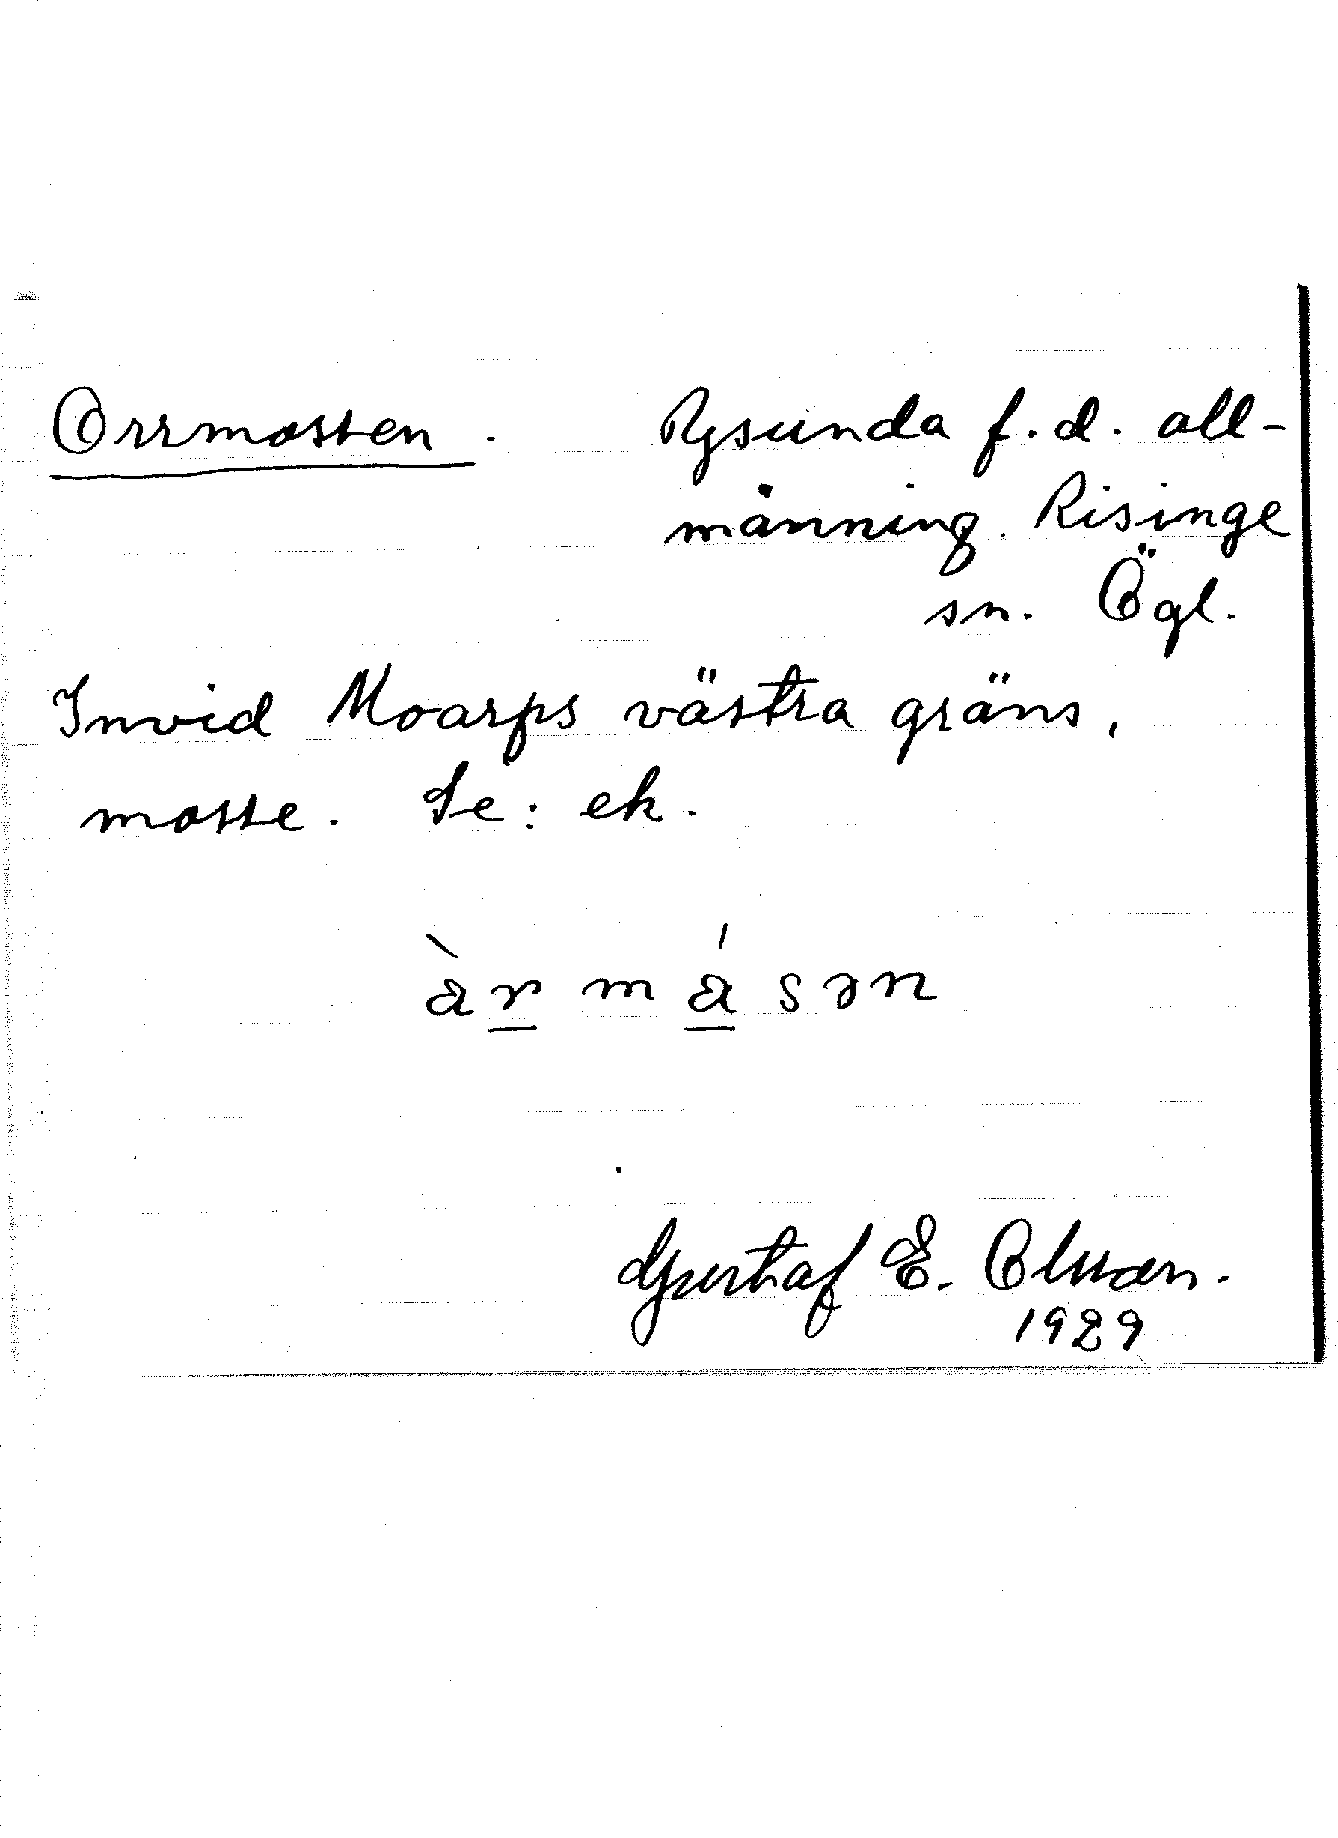 Orrmossen. Rysunda f.d. all-
männing. Risinge
sn. Ögl.
Invid Moarps västra gräns,
mosse. Se: ek.
àr má sən
Gustaf E. Olsson.
1929